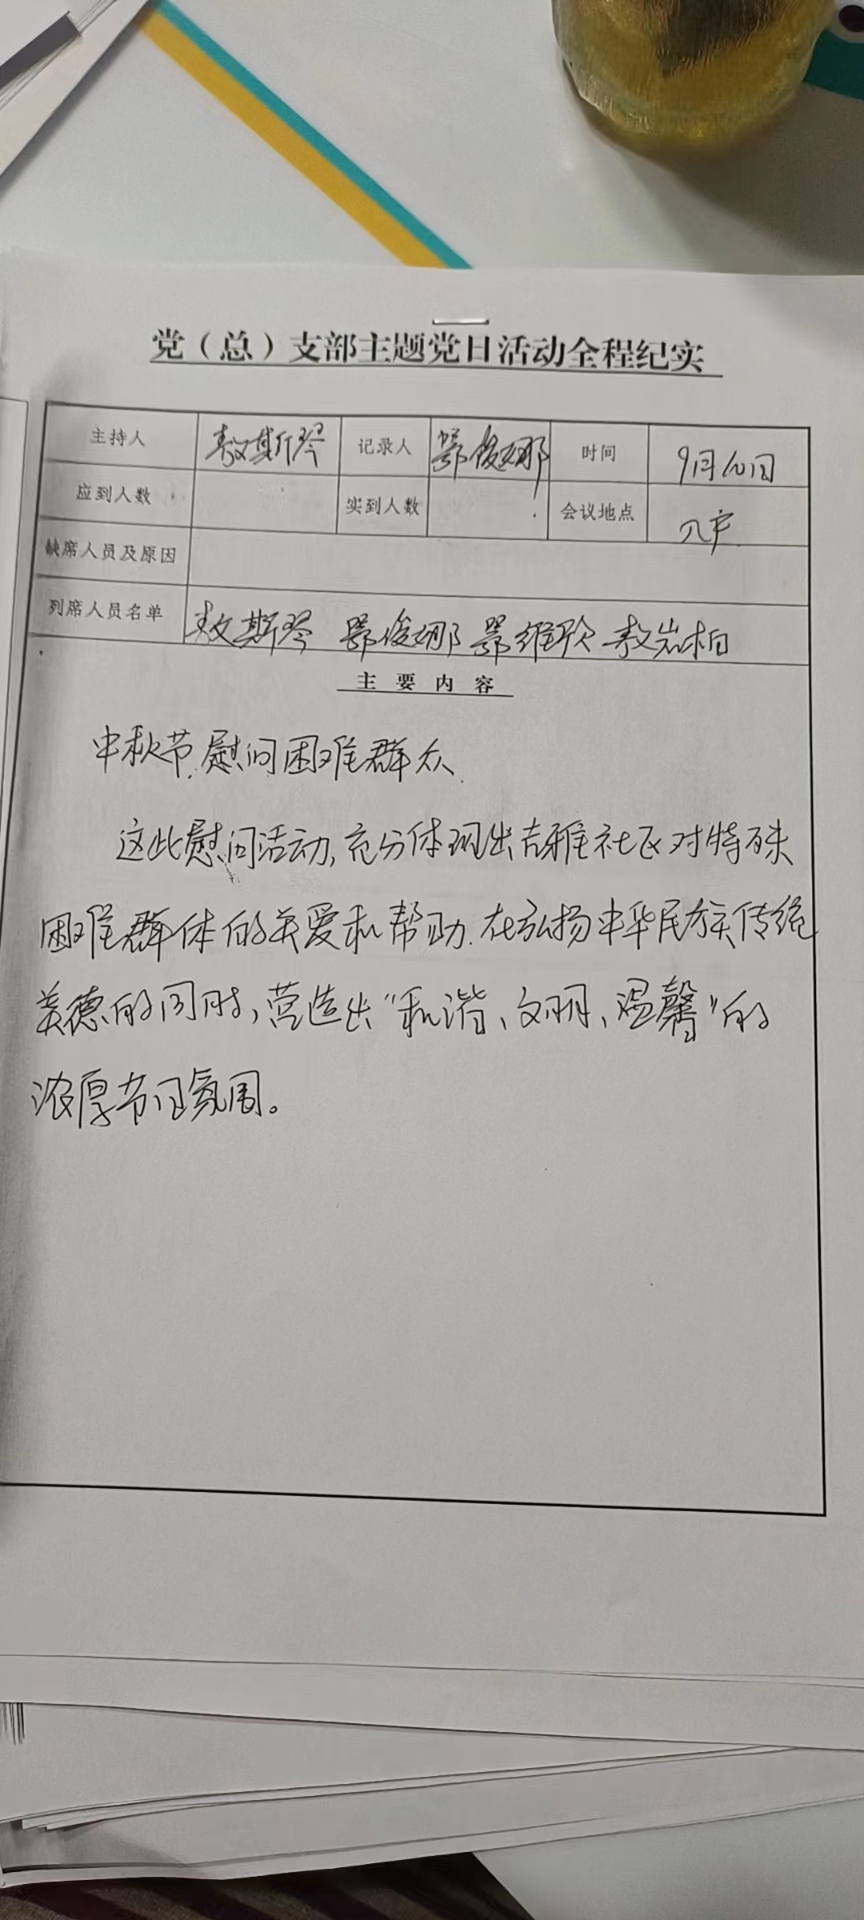 党（总）支部主题党日活动全程纪实
主持人 敖斯琴 记录人 鄂俊娜 时间 9月10日
应到人数 实到人数 会议地点 入户
缺席人员及原因
列席人员名单 敖斯琴 鄂俊娜 鄂维 敖岩柏
主要内容
中秋节慰问困难群众
这此慰问活动,充分体现出吉雅社区对特殊
困难群体的关爱和帮助.在弘扬中华民族传统
美德的同时,营造出“和谐、文明、温馨”的
浓厚节日氛围。